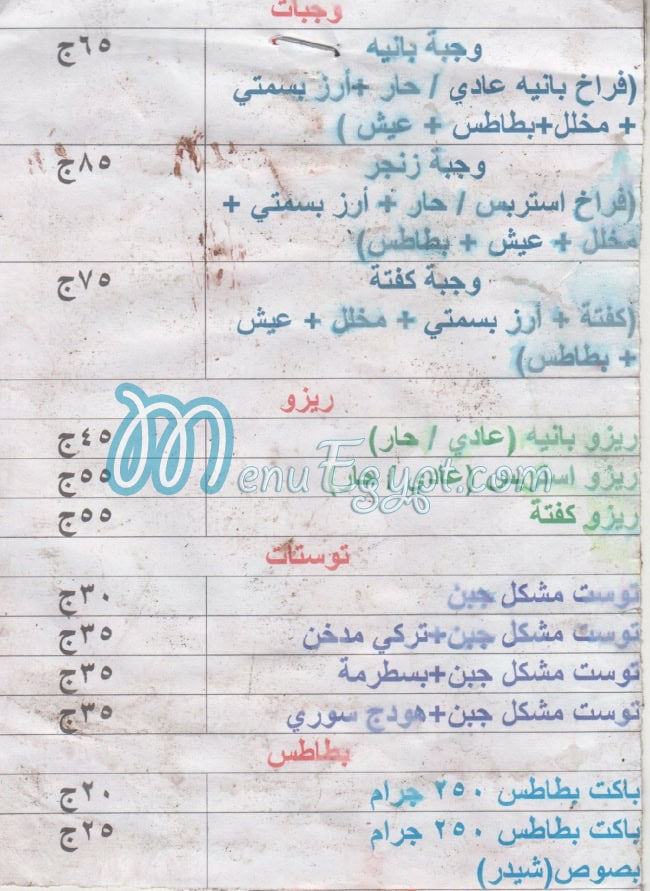 وجبات
وجبة بانيه ٦٥ج
(فراخ بانيه عادي / حار +أرز بسمتي
+ مخلل+بطاطس + عيش )
وجبة زنجر ٨٥ج
(فراخ استربس / حار + أرز بسمتي +
مخلل + عيش + بطاطس)
وجبة كفتة ٧٥ج
(كفتة + أرز بسمتي + مخلل + عيش
+ بطاطس)
ريزو
ريزو بانيه (عادي / حار) ٤٥ج
ريزو استربس (عادي / حار) ٥٥ج
ريزو كفتة ٥٥ج
MenuEgypt.com
توستات
توست مشكل جبن ٣٠ج
توست مشكل جبن+تركي مدخن ٣٥ج
توست مشكل جبن+بسطرمة ٣٥ج
توست مشكل جبن+هودج سوري ٣٥ج
بطاطس
باكت بطاطس ٢٥٠ جرام ٢٠ج
باكت بطاطس ٢٥٠ جرام ٢٥ج
بصوص(شيدر)